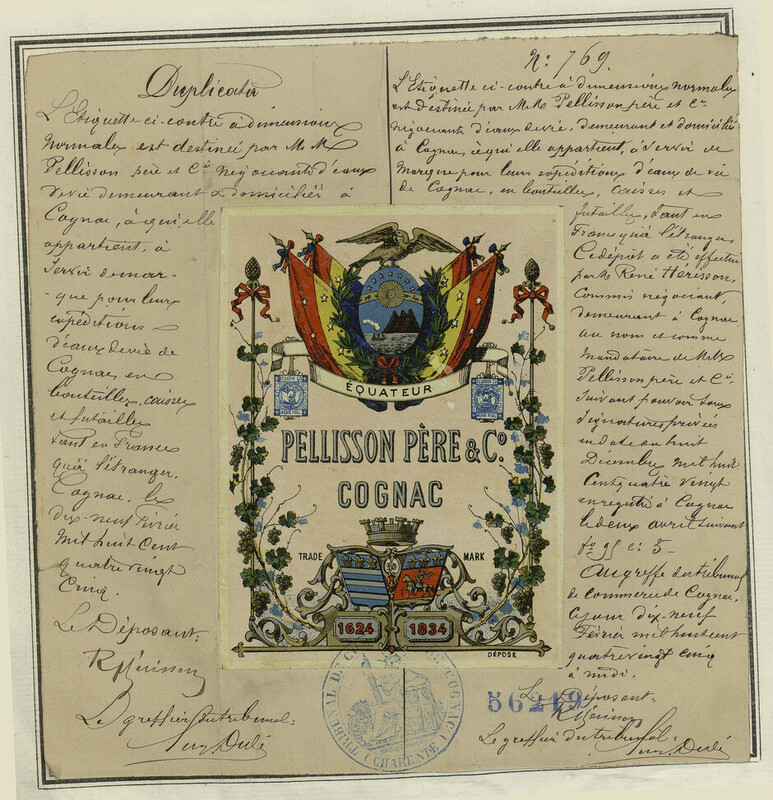 Duplicata
L'Etiquette ci-contre à dimensions
normales est destinée par M.M.
Pellisson père et Cie négociants d'eaux
de vie demeurant & domiciliés à
Cognac, à qui elle
appartient, à
servir de mar-
-que pour leurs
expéditions
d'eaux de vie de
Cognac, en
bouteilles, caisses
et futailles
tant en France
qu'à l'étranger.
Cognac, le
dix-neuf Février
mil huit cent
quatre vingt
cinq.
Le Déposant:
R Hérisson
Le greffier du tribunal:
No 769.
L'Etiquette ci-contre à dimensions normales
est destinée par M.M. Pellisson père et Cie
négociants d'eaux de vie, demeurant et domiciliés
à Cognac, à qui elle appartient, à servir de
marque pour leurs expéditions d'eaux de vie
de Cognac, en bouteilles, caisses et
futailles, tant en
France qu'à l'étranger
Ce dépôt a été effectué
par M. René Hérisson,
Commis négociant,
demeurant à Cognac
au nom et comme
mandataire de M.M.
Pellisson père et Cie
suivant pouvoir sous
signatures privées
en date au huit
Décembre mil huit
cent quatre vingt
enregistré à Cognac
le deux avril suivant
fo 95 c. 5 -
Au greffe du tribunal
de commerce de Cognac,
ce jour dix-neuf
Février mil huit cent
quatre vingt cinq
à midi.
Le Déposant.
R Hérisson
Le greffier du tribunal:
56219
ÉQUATEUR
PELLISSON PÈRE & Co.
COGNAC
TRADE MARK
1624 1834
DÉPOSÉ
TRIBUNAL DE COGNAC
(CHARENTE)